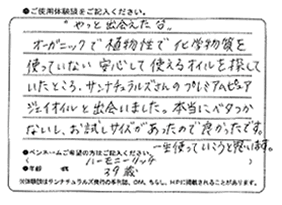 ●ご使用体験談をご記入ください。
"やっと出会えた台"
オーガニックで植物性で化学物質を
使っていない安心して使えるオイルを探して
いたところ、サンナチュラルズさんのプレミアムピュア
ジェイオイルと出会いました。本当にベタつか
ないし、お試しサイズがあったので良かったです。
一生使っていこうと思います。
●ペンネームご希望の方はご記入ください。
(ハーモニーリッチ
●年齢 39歳
※体験談はサンナチュラルズ発行の季刊誌、DM、ちらし、HPに掲載されることがあります。